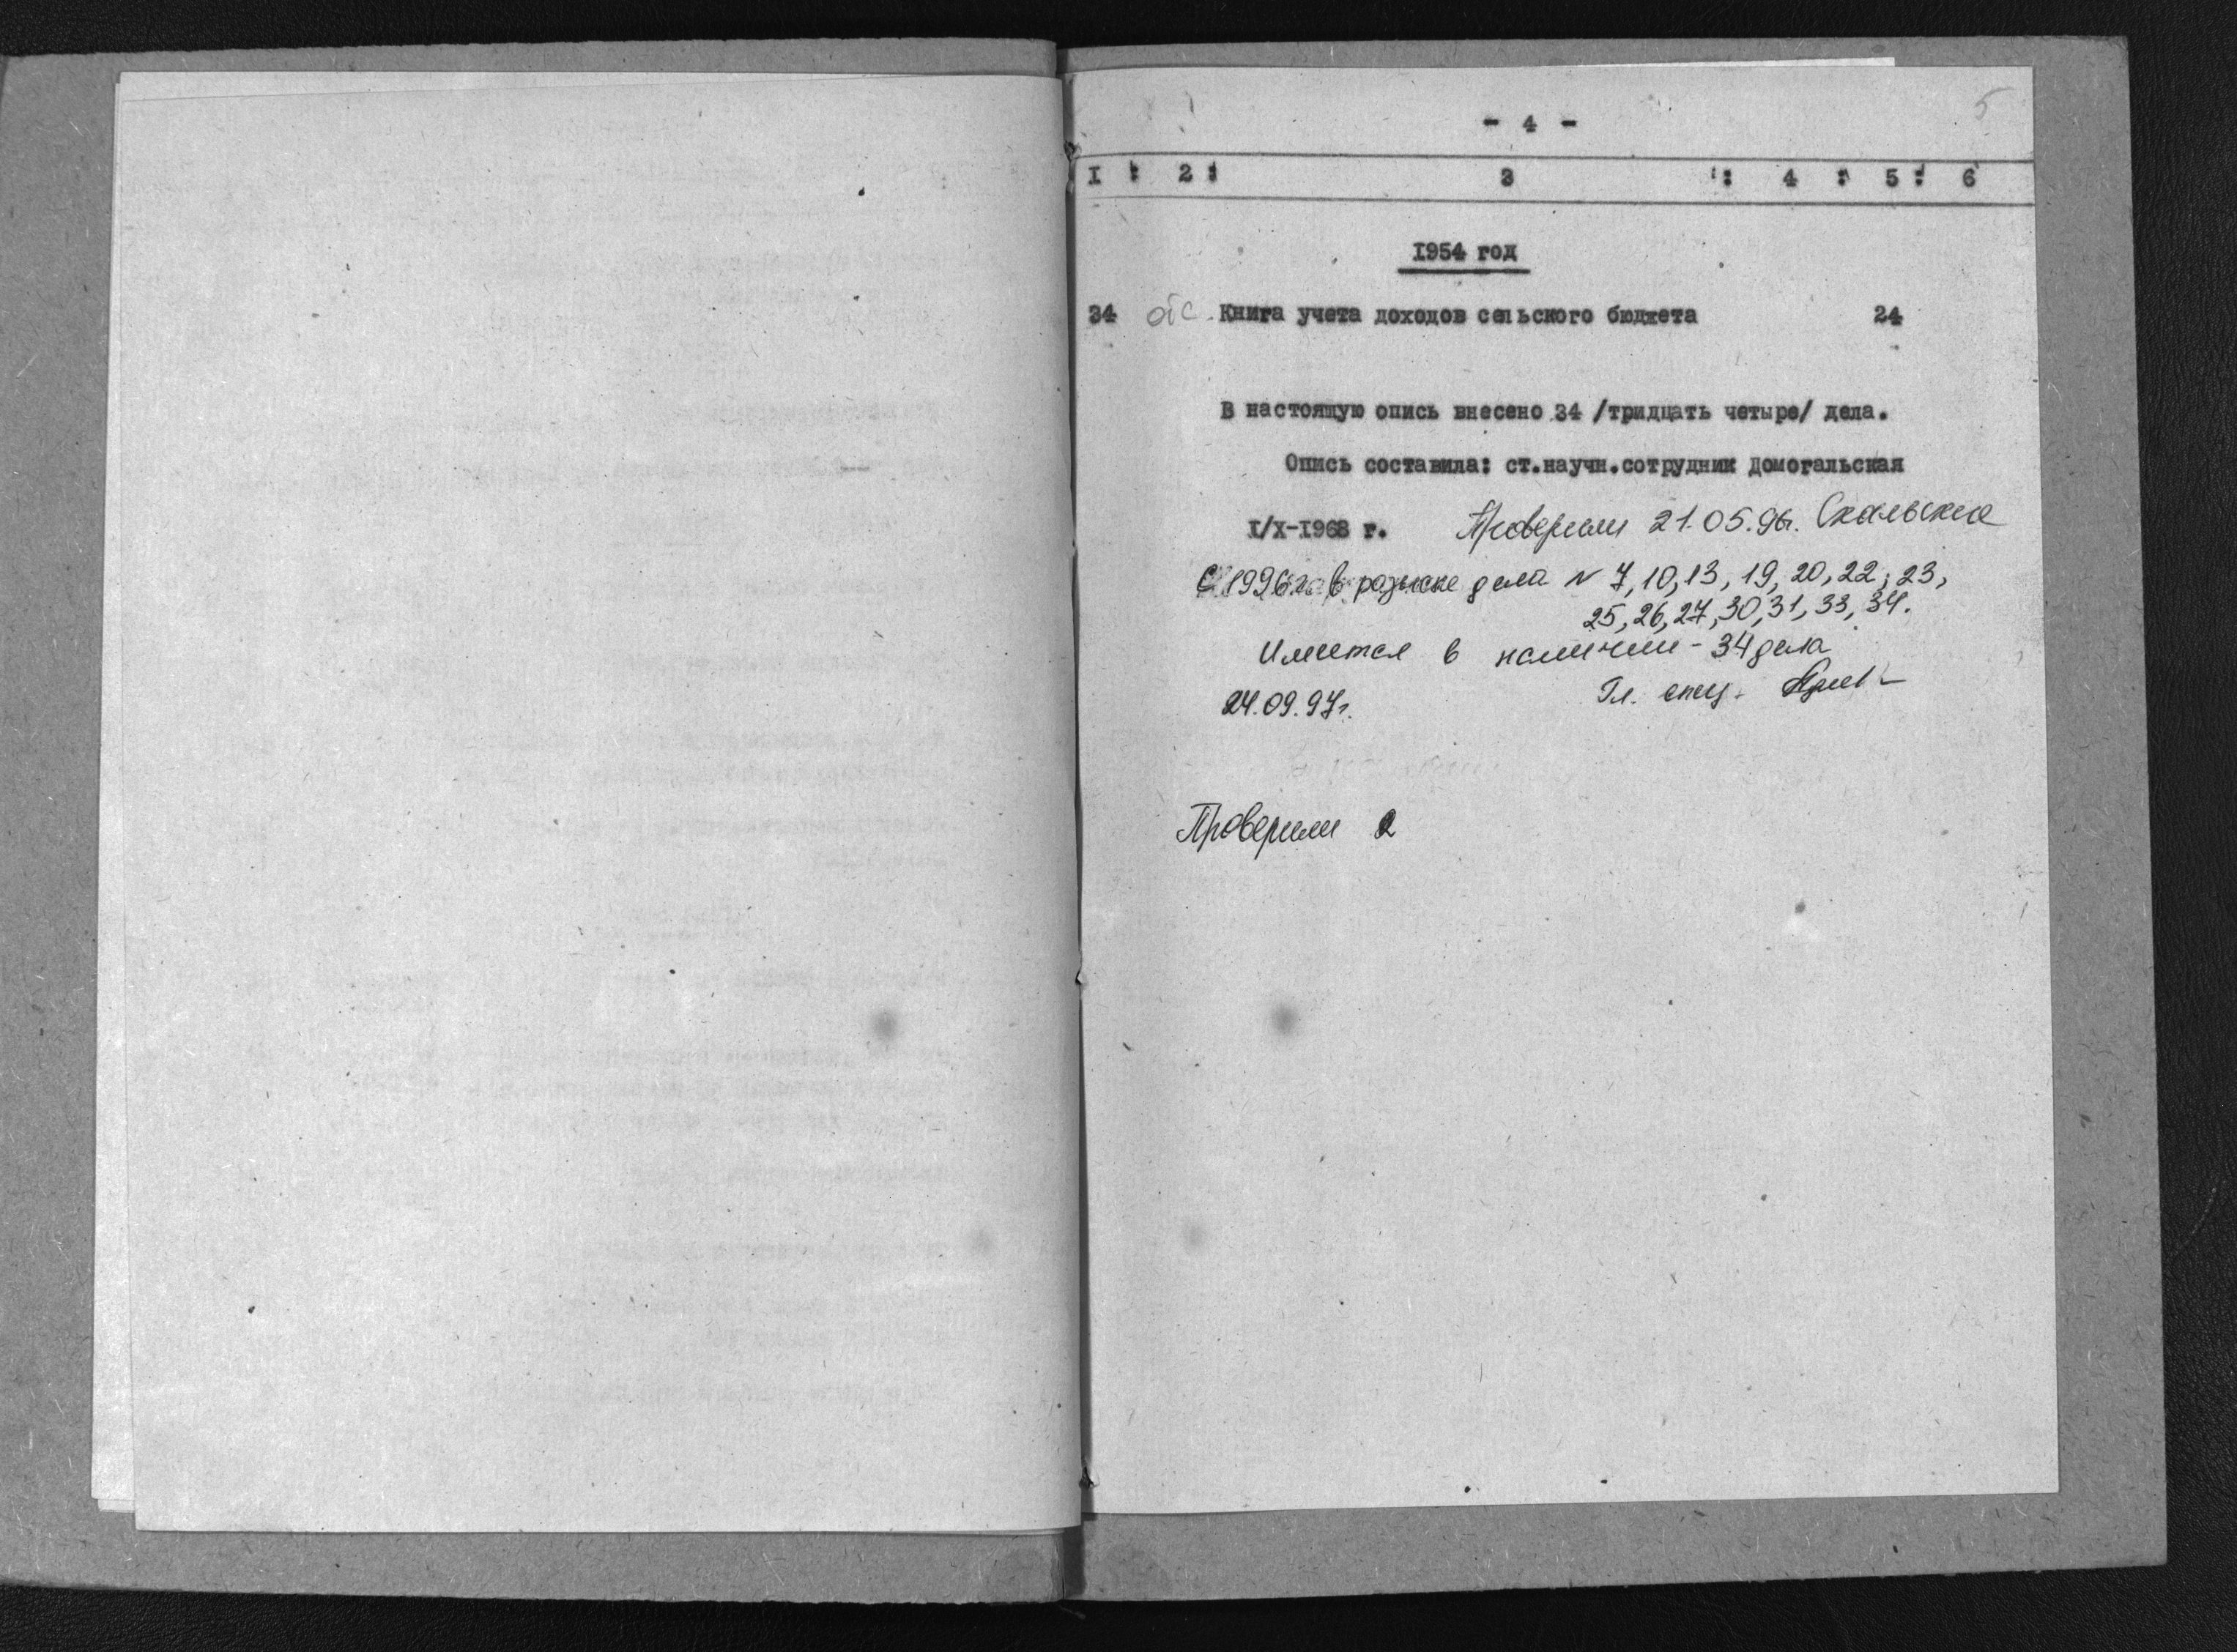 5
- 4 -
I : 2 : 3 : 4 : 5 : 6
1954 год
34 Книга учета доходов сельского бюджета 24
В настоящую опись внесено 34 /тридцать четыре/ дела.
Опись составила: ст.научн.сотрудник Домогальская
I/X-1968 г. Проверили 21.05.96г.
С 1996г. в розыске дела N 7, 10, 13, 19, 20, 22, 23,
25, 26, 27, 30, 31, 33, 34.
Имеется в наличии - 34 дела
24.09.97г. Гл. спец.
Проверили